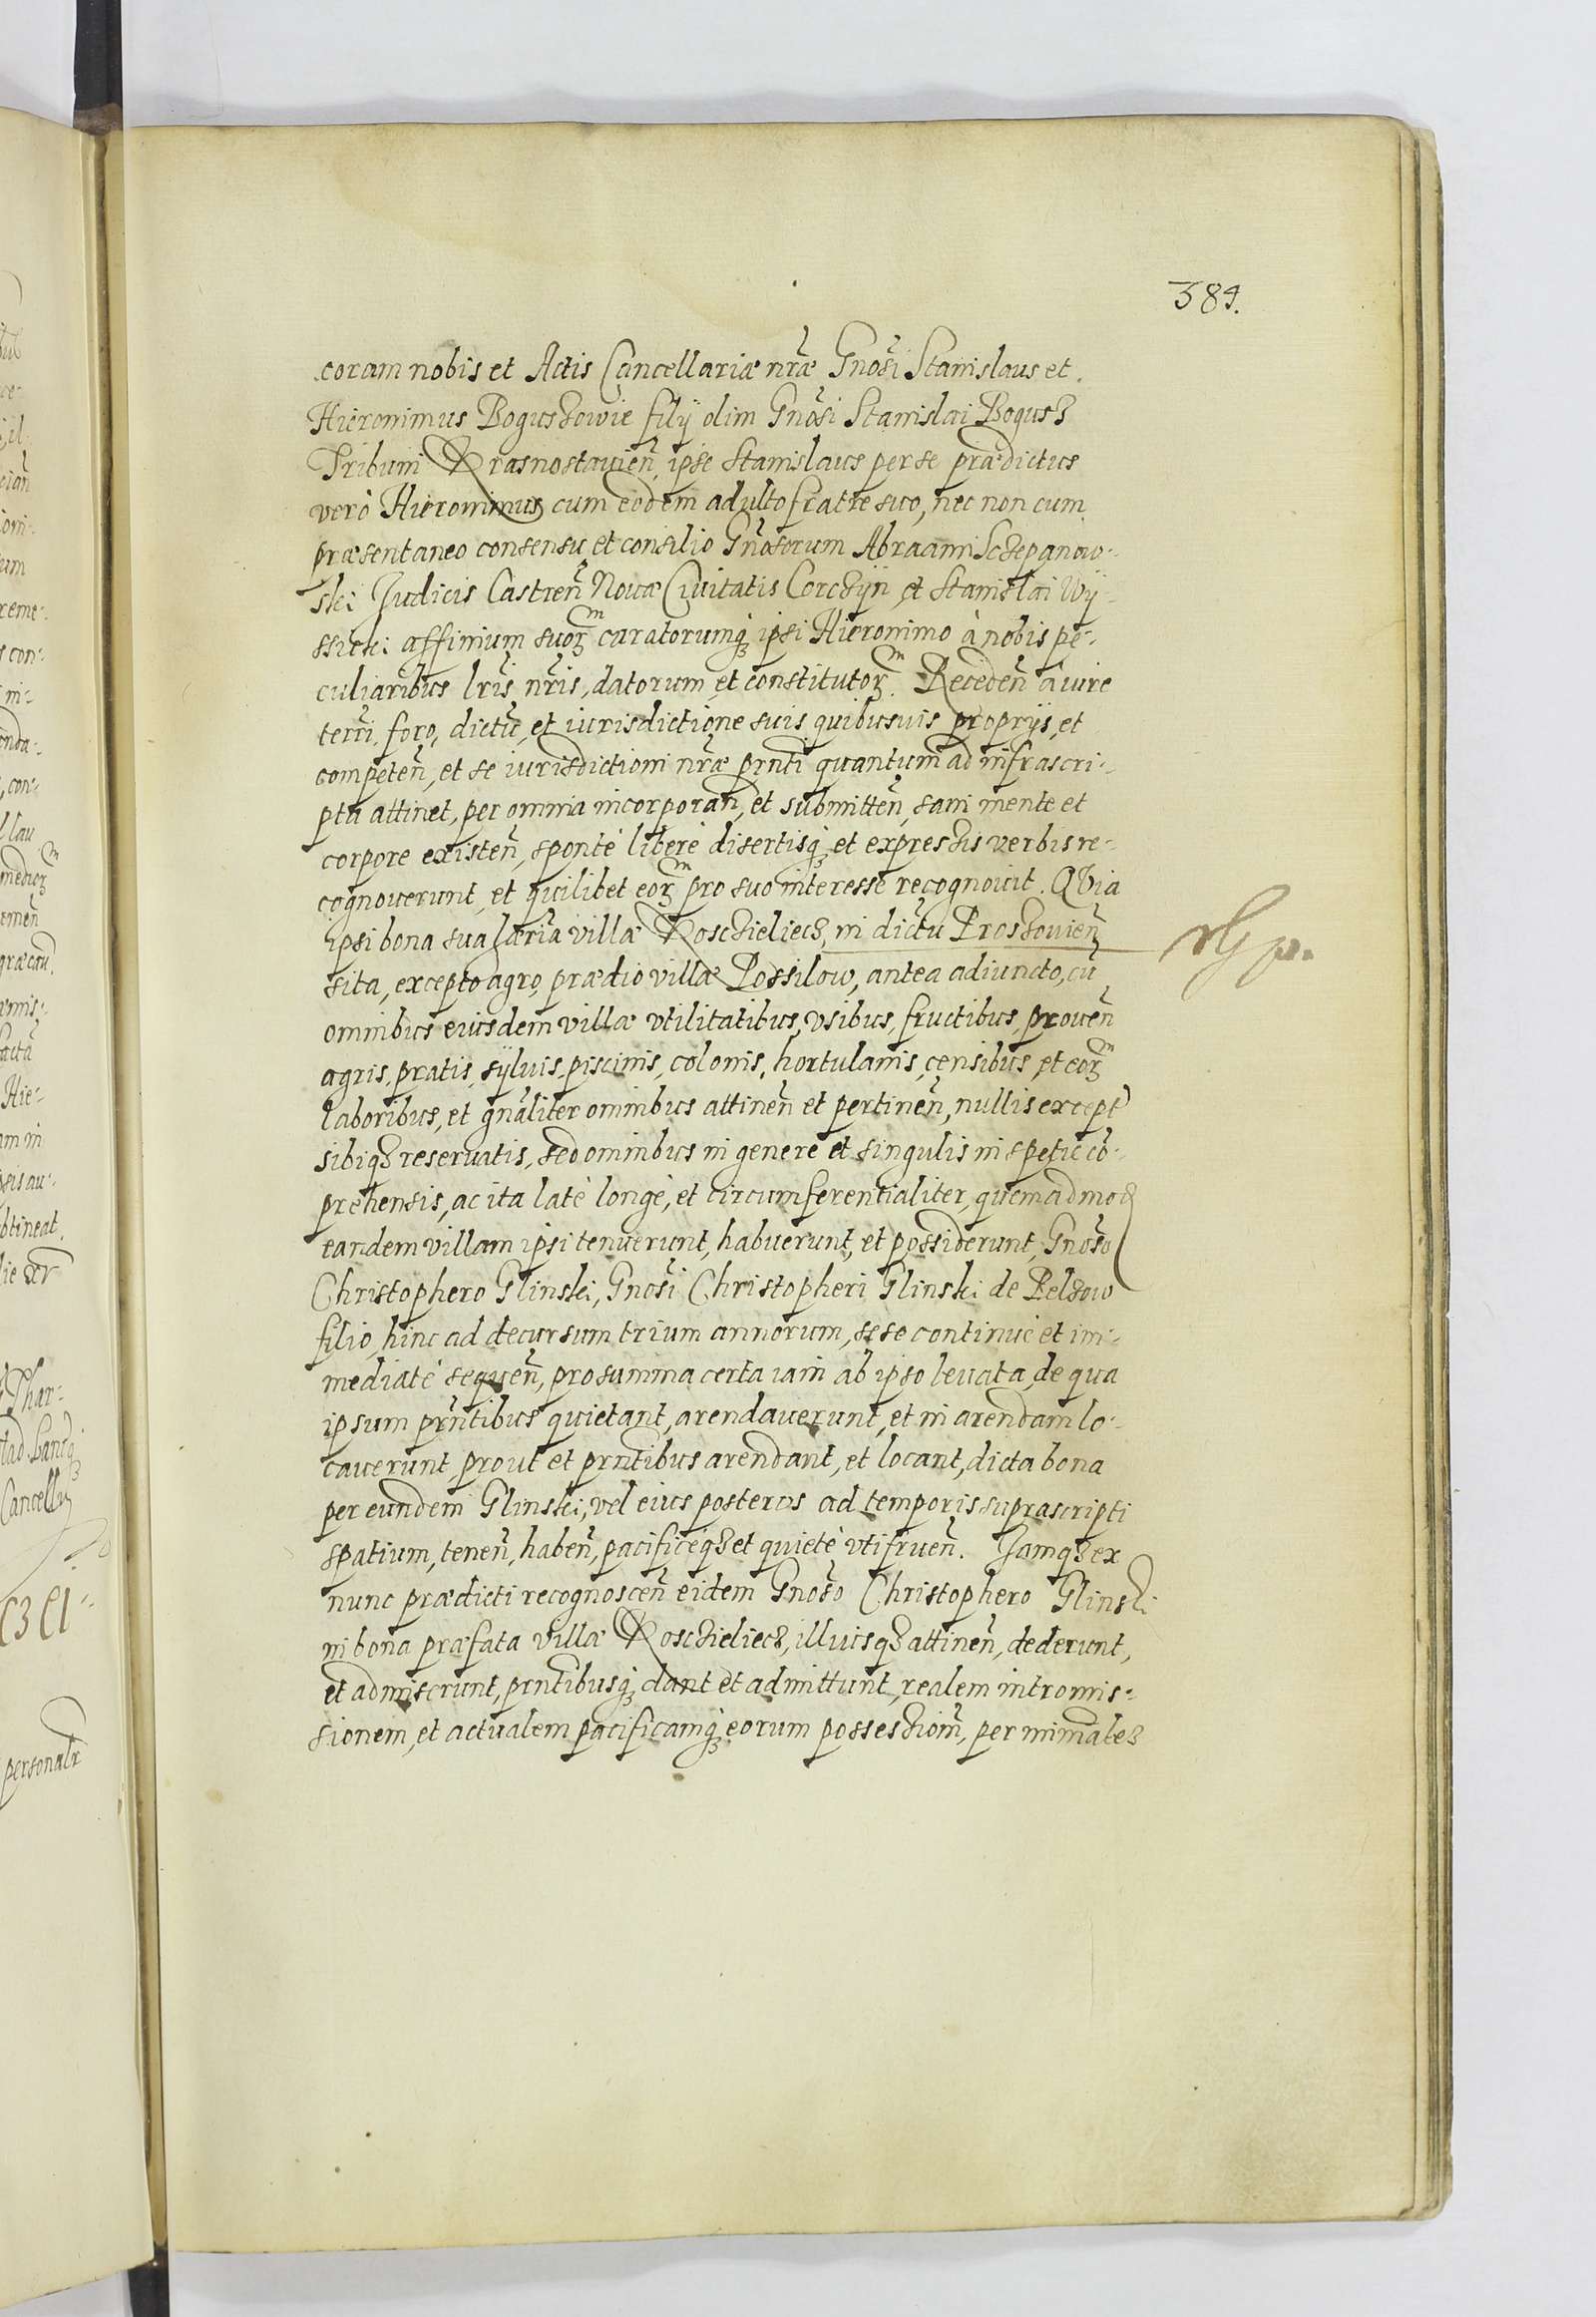 389.
coram nobis et Actis Cancellariæ nr̃æ Gnõsi Stanislaus et
Hieronimus Boguszowie filÿ olim Gnõsi Stanislai Bogusz
Tribuni Krasnostauieñ, ipse Stanislaus per se prædictus
verò Hieronimus cum eodem adulto fratre suo, nec non cum
præsentaneo consensu et consilio Gnõsorum Abraami Sczepanow-
ski Judicis Castreñ Nouæ Ciuitatis Corczÿn et Stanislai Wÿ-
ssicki affinium suoꝝ curatorumqꝫ ipsi Hieronimo à nobis pe-
culiaribus lr̃is nr̃is, datorum et constitutoꝝ. Recedeñ à iure
terri, foro, dictũ, et iurisdictione suis quibusuis proprÿs, et
competeñ, et se iurisdictioni nr̃æ pñti quantum ad infrascri-
pta attinet, per omnia incorporañ, et submitteñ, sani mente et
corpore existeñ, spontè liberè disertisqꝫ et expressis verbis re-
cognouerunt, et quilibet eoꝝ pro suo interesse recognouit. QVia
ipsi bona sua hæria villæ Kosczieliecz, in dictũ Proszouieñ
sita, excepto agro, prædio villæ Possilow, antea adiuncto, cũ
omnibus eiusdem villæ vtilitatibus, vsibus, fructibus, proueñ
agris, pratis, sÿluis, piscinis, colonis, hortulanis, censibus, et eoꝝ
laboribus, et gnãliter omnibus attineñ et pertineñ, nullis except
sibiqꝫ reseruatis, sed omnibus in genere et singulis in spetie cõ-
prehensis, ac ita latè longè, et circumferentialiter, quemadmod
eandem villam ipsi tenuerunt, habuerunt, et possiderunt, Gnõso
Christophero Glinski, Gnõsi Christopheri Glinski de Belzow
filio, hinc ad decursum trium annorum, sese continuè et im-
mediatè sequeñ, pro summa certa iam ab ipso leuata, de qua
ipsum pr̃ntibus quietant, arendauerunt, et in arendam lo-
cauerunt prout et prntibus arendant, et locant, dicta bona
per eundem Glinski, vel eius posteros ad temporis suprascripti
spatium, teneñ, habeñ, pacificèqꝫ et quietè vtifrueñ. Jamqꝫ ex
nunc prædicti recognosceñ eidem Gnõso Christophero Glinski
in bona præfata villæ Kosczieliecz, illiusqꝫ attineñ, dederunt,
et admiserunt, prntibusqꝫ dant et admittunt, realem intromis-
sionem, et actualem pacificamqꝫ eorum possessioñ, per